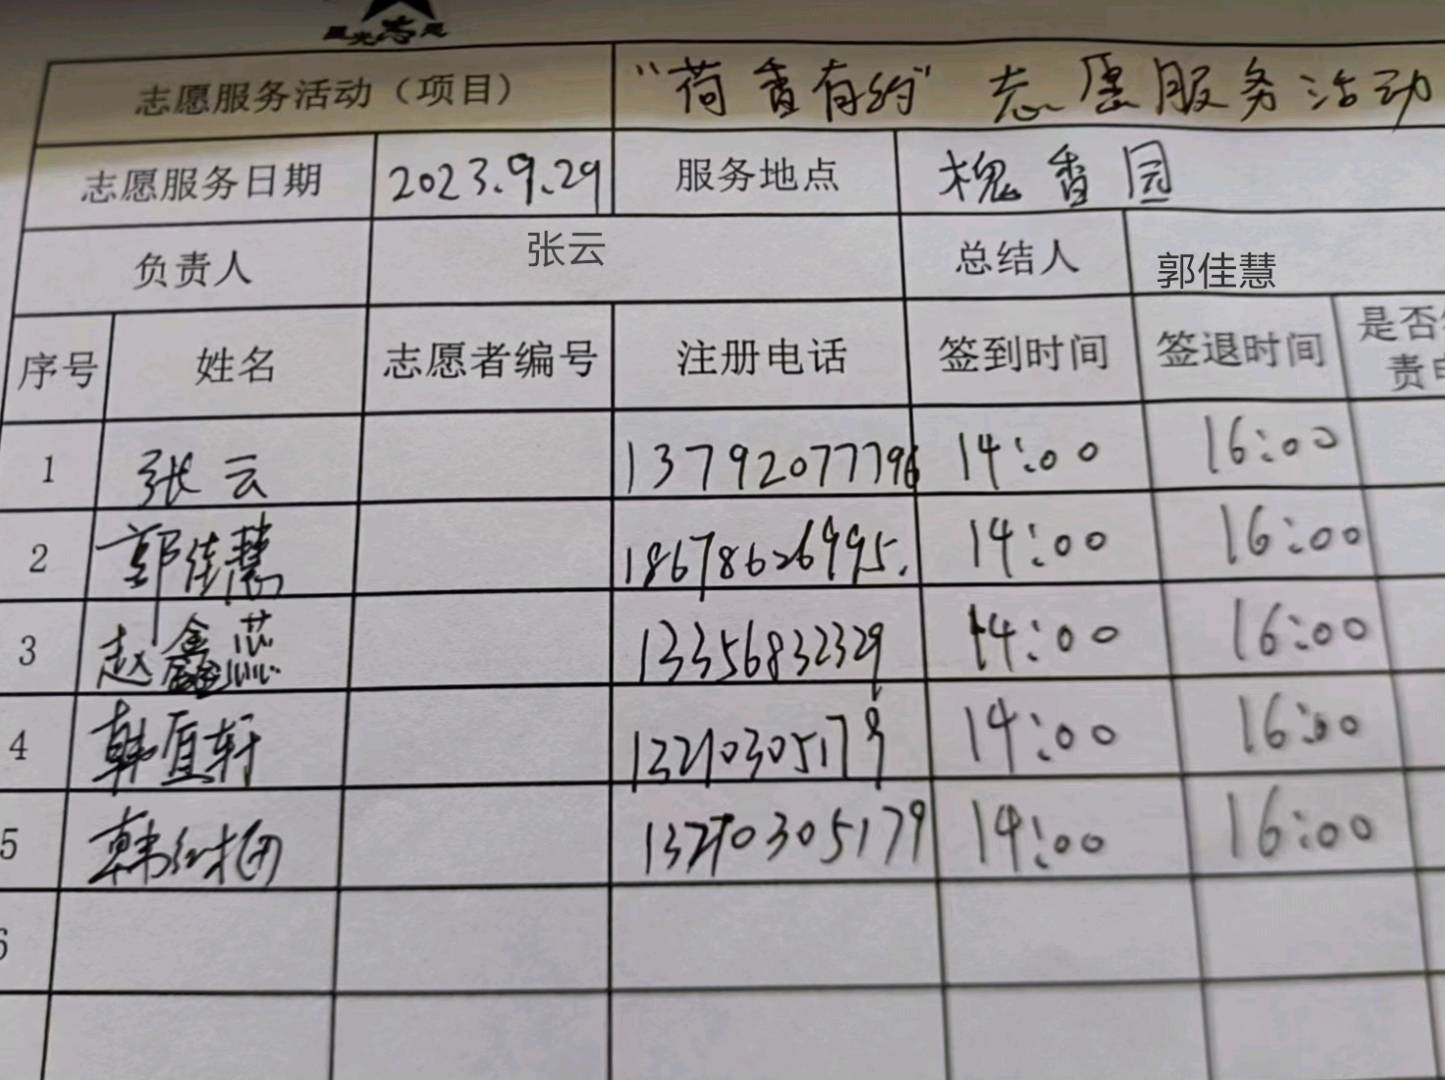 志愿服务活动（项目） “荷香有约”志愿服务活动
志愿服务日期 2023.9.29 服务地点 槐香园
负责人 张云 总结人 郭佳慧
序号 姓名 志愿者编号 注册电话 签到时间 签退时间 是否
责
1 张云 13792077796 14:00 16:00
2 郭佳慧 18678626995. 14:00 16:00
3 赵鑫蕊 13356832329 14:00 16:00
4 韩宜轩 13210305179 14:00 16:00
5 韩红梅 13210305179 14:00 16:00
6